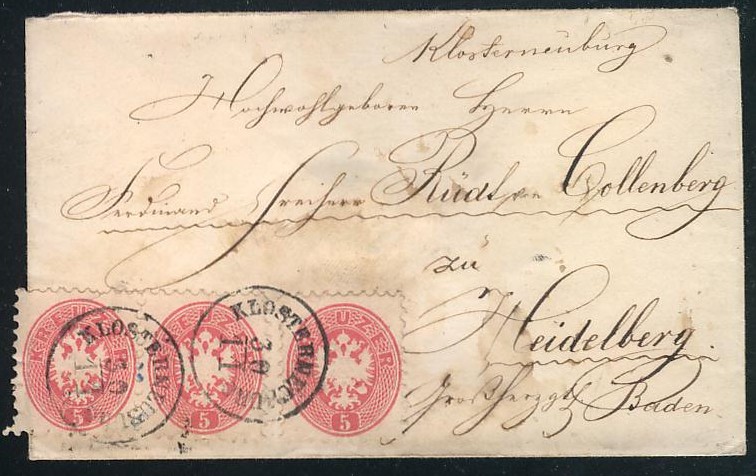 Klosterneuburg
Hochwohlgeboren Herrn
Ferdinand Freiherr Rüdt von Collenberg
zu
Heidelberg.
Großherzgt Baden
KLOSTERNEUBURG
30
KLOSTERNEUBURG
30
11
KREUZER
5
KREUZER
5
KREUZER
5